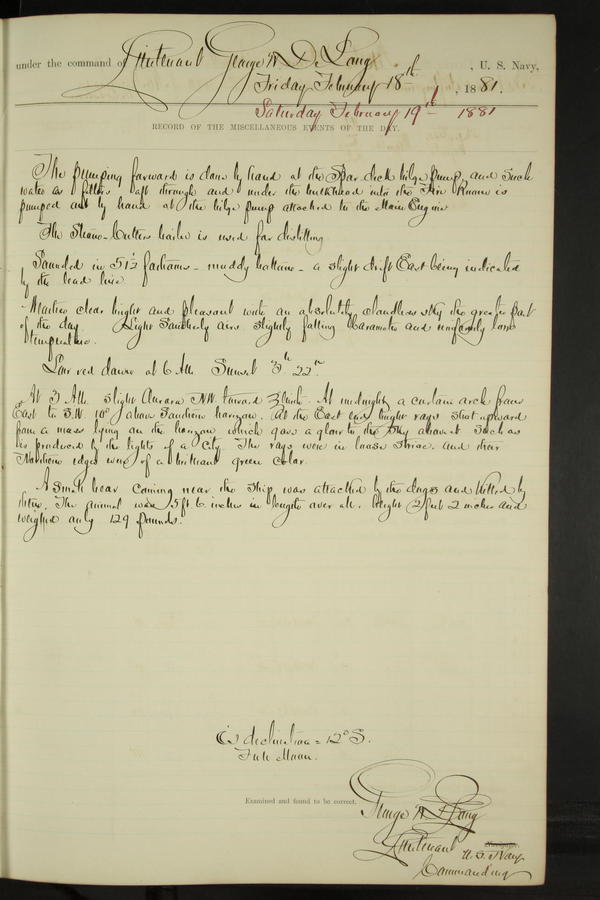 under the command of Lieutenant George W. De Long, U. S. Navy,
Friday February 18th, 1881.
Saturday February 19th 1881
RECORD OF THE MISCELLANEOUS EVENTS OF THE DAY.
The pumping forward is done by hand at the Spar deck bilge pump, and such
water as filters aft through and under the bulkhead into the Fire Room is
pumped out by hand at the bilge pump attached to the Main Engine
The Steam-Cutters boiler is used for distilling
Sounded in 51½ fathoms - muddy bottom - a slight drift East being indicated
by the lead line.
Weather clear bright and pleasant with an absolutely cloudless sky the greater part
of the day Light Southerly airs slightly falling barometer and uniformly low
temperature.
red dawn at 6 AM. Sunset
At 3 AM. slight Aurora NW. toward Zenith. At midnight a curtain arch from
East to S.W. 10° above Southern horizon. At the East bright rays shot upward
from a mass lying on the horizon which gave a glow to the sky almost such as
is produced by the lights of a City. The rays were in loose striae and their
Northern edges were of a brilliant green color.
A small bear coming near the ship was attacked by the dogs and killed by
them. The animal was 5 ft. 6 inches in length over all. Height 2 feet 2 inches and
weighed only 129 pounds.
declination = 12° S.
Full Moon.
Examined and found to be correct.
George W. De Long
Lieutenant
U. S. Navy
Commanding